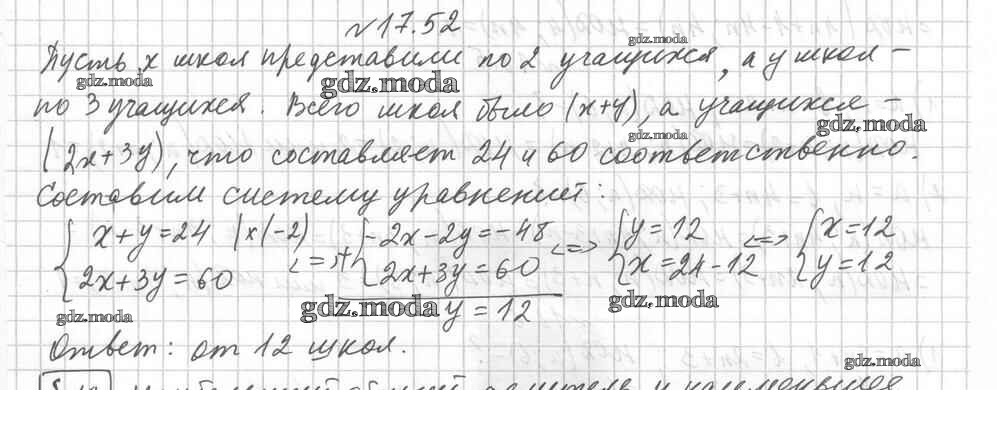 №17.52
Пусть x школ представили по 2 учащихся, а y школ –
по 3 учащихся. Всего школ было (x+y), а учащихся –
(2x+3y), что составляет 24 и 60 соответственно.
Составим систему уравнений:
{ x+y=24 |×(-2) <=> + { -2x-2y=-48 <=> { y=12 <=> { x=12
2x+3y=60 2x+3y=60 x=24-12 y=12
y=12
Ответ: от 12 школ.
gdz.moda
gdz.moda
gdz.moda
gdz.moda
gdz.moda
gdz.moda
gdz.moda
gdz.moda
gdz.moda